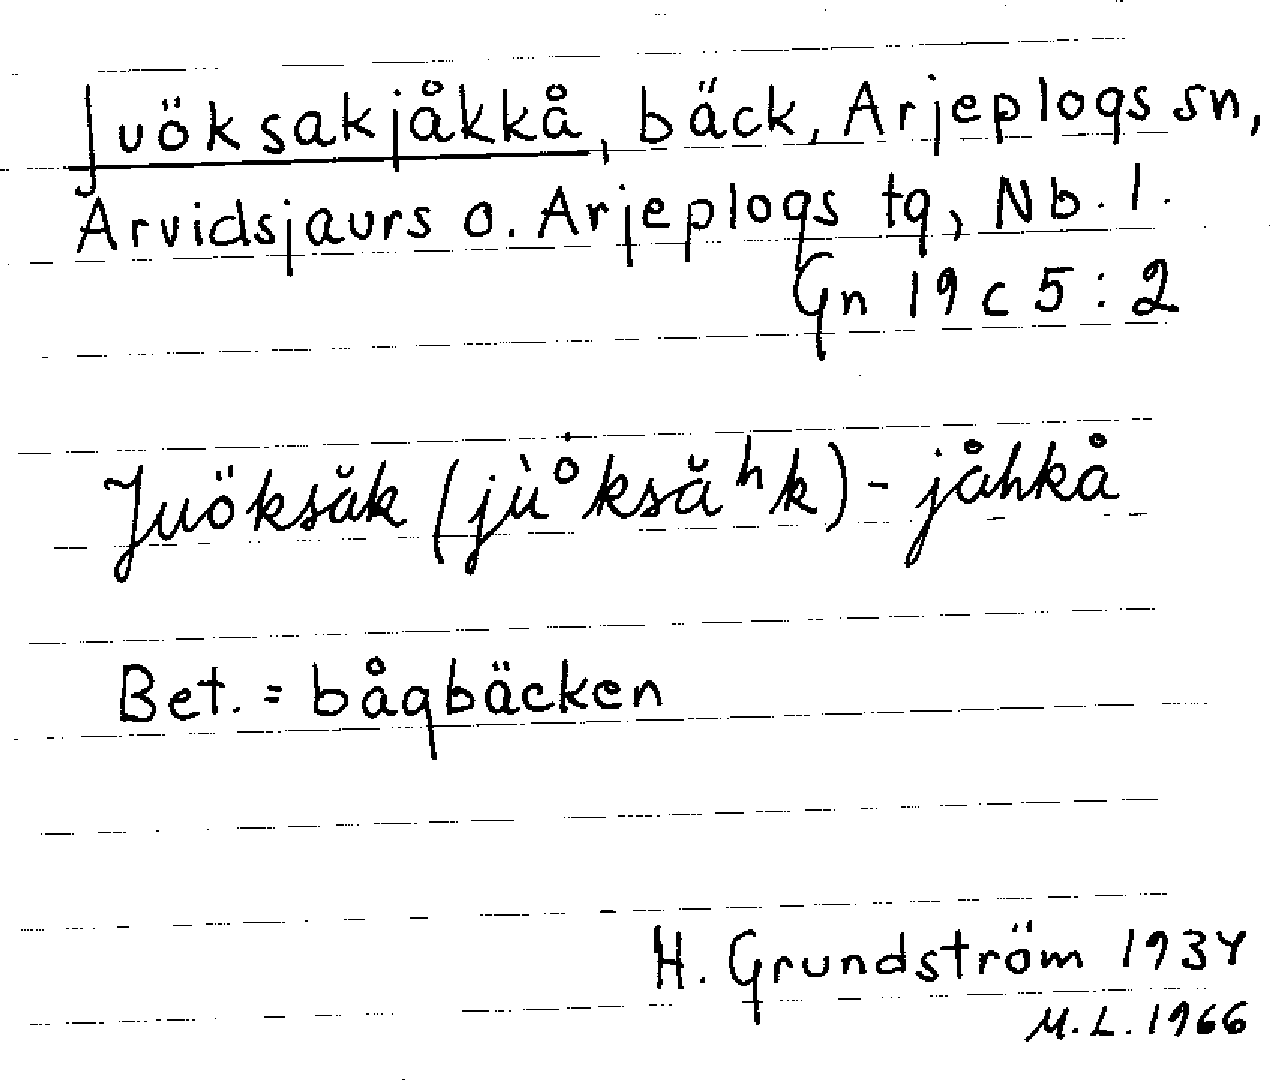 Juöksakjåkkå, bäck, Arjeplogs sn,
Arvidsjaurs o. Arjeplogs tg, Nb. l.
Gn 19 c 5 : 2
Juöksăk (jù̊ksăʰk) - jåhkå
Bet. = bågbäcken
H. Grundström 1934
M.L. 1966